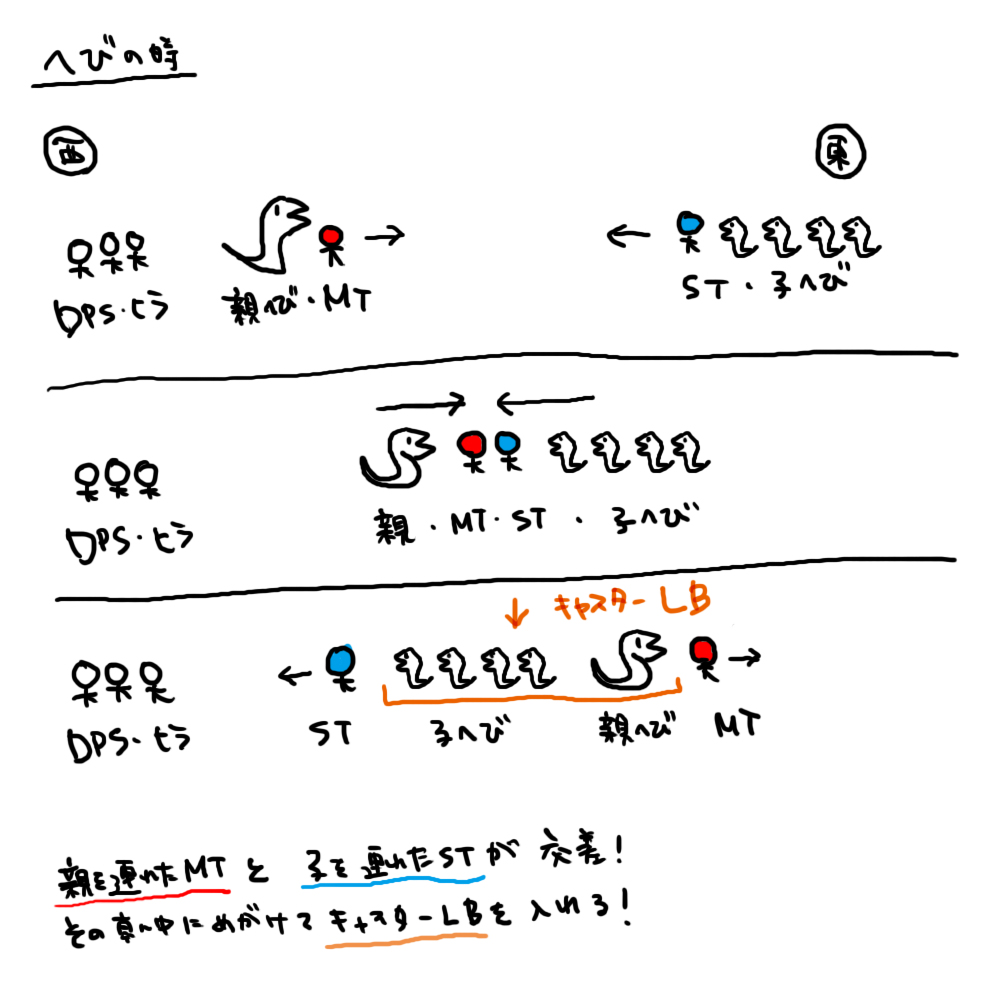 へびの時
西
東
DPS・ヒラ
親へび・MT
ST・子へび
DPS・ヒラ
親・MT・ST・子へび
キャスターLB
DPS・ヒラ
ST
子へび
親へび
MT
親を連れたMTと 子を連れたSTが 交差!
その真ん中にめがけてキャスターLBを入れる!